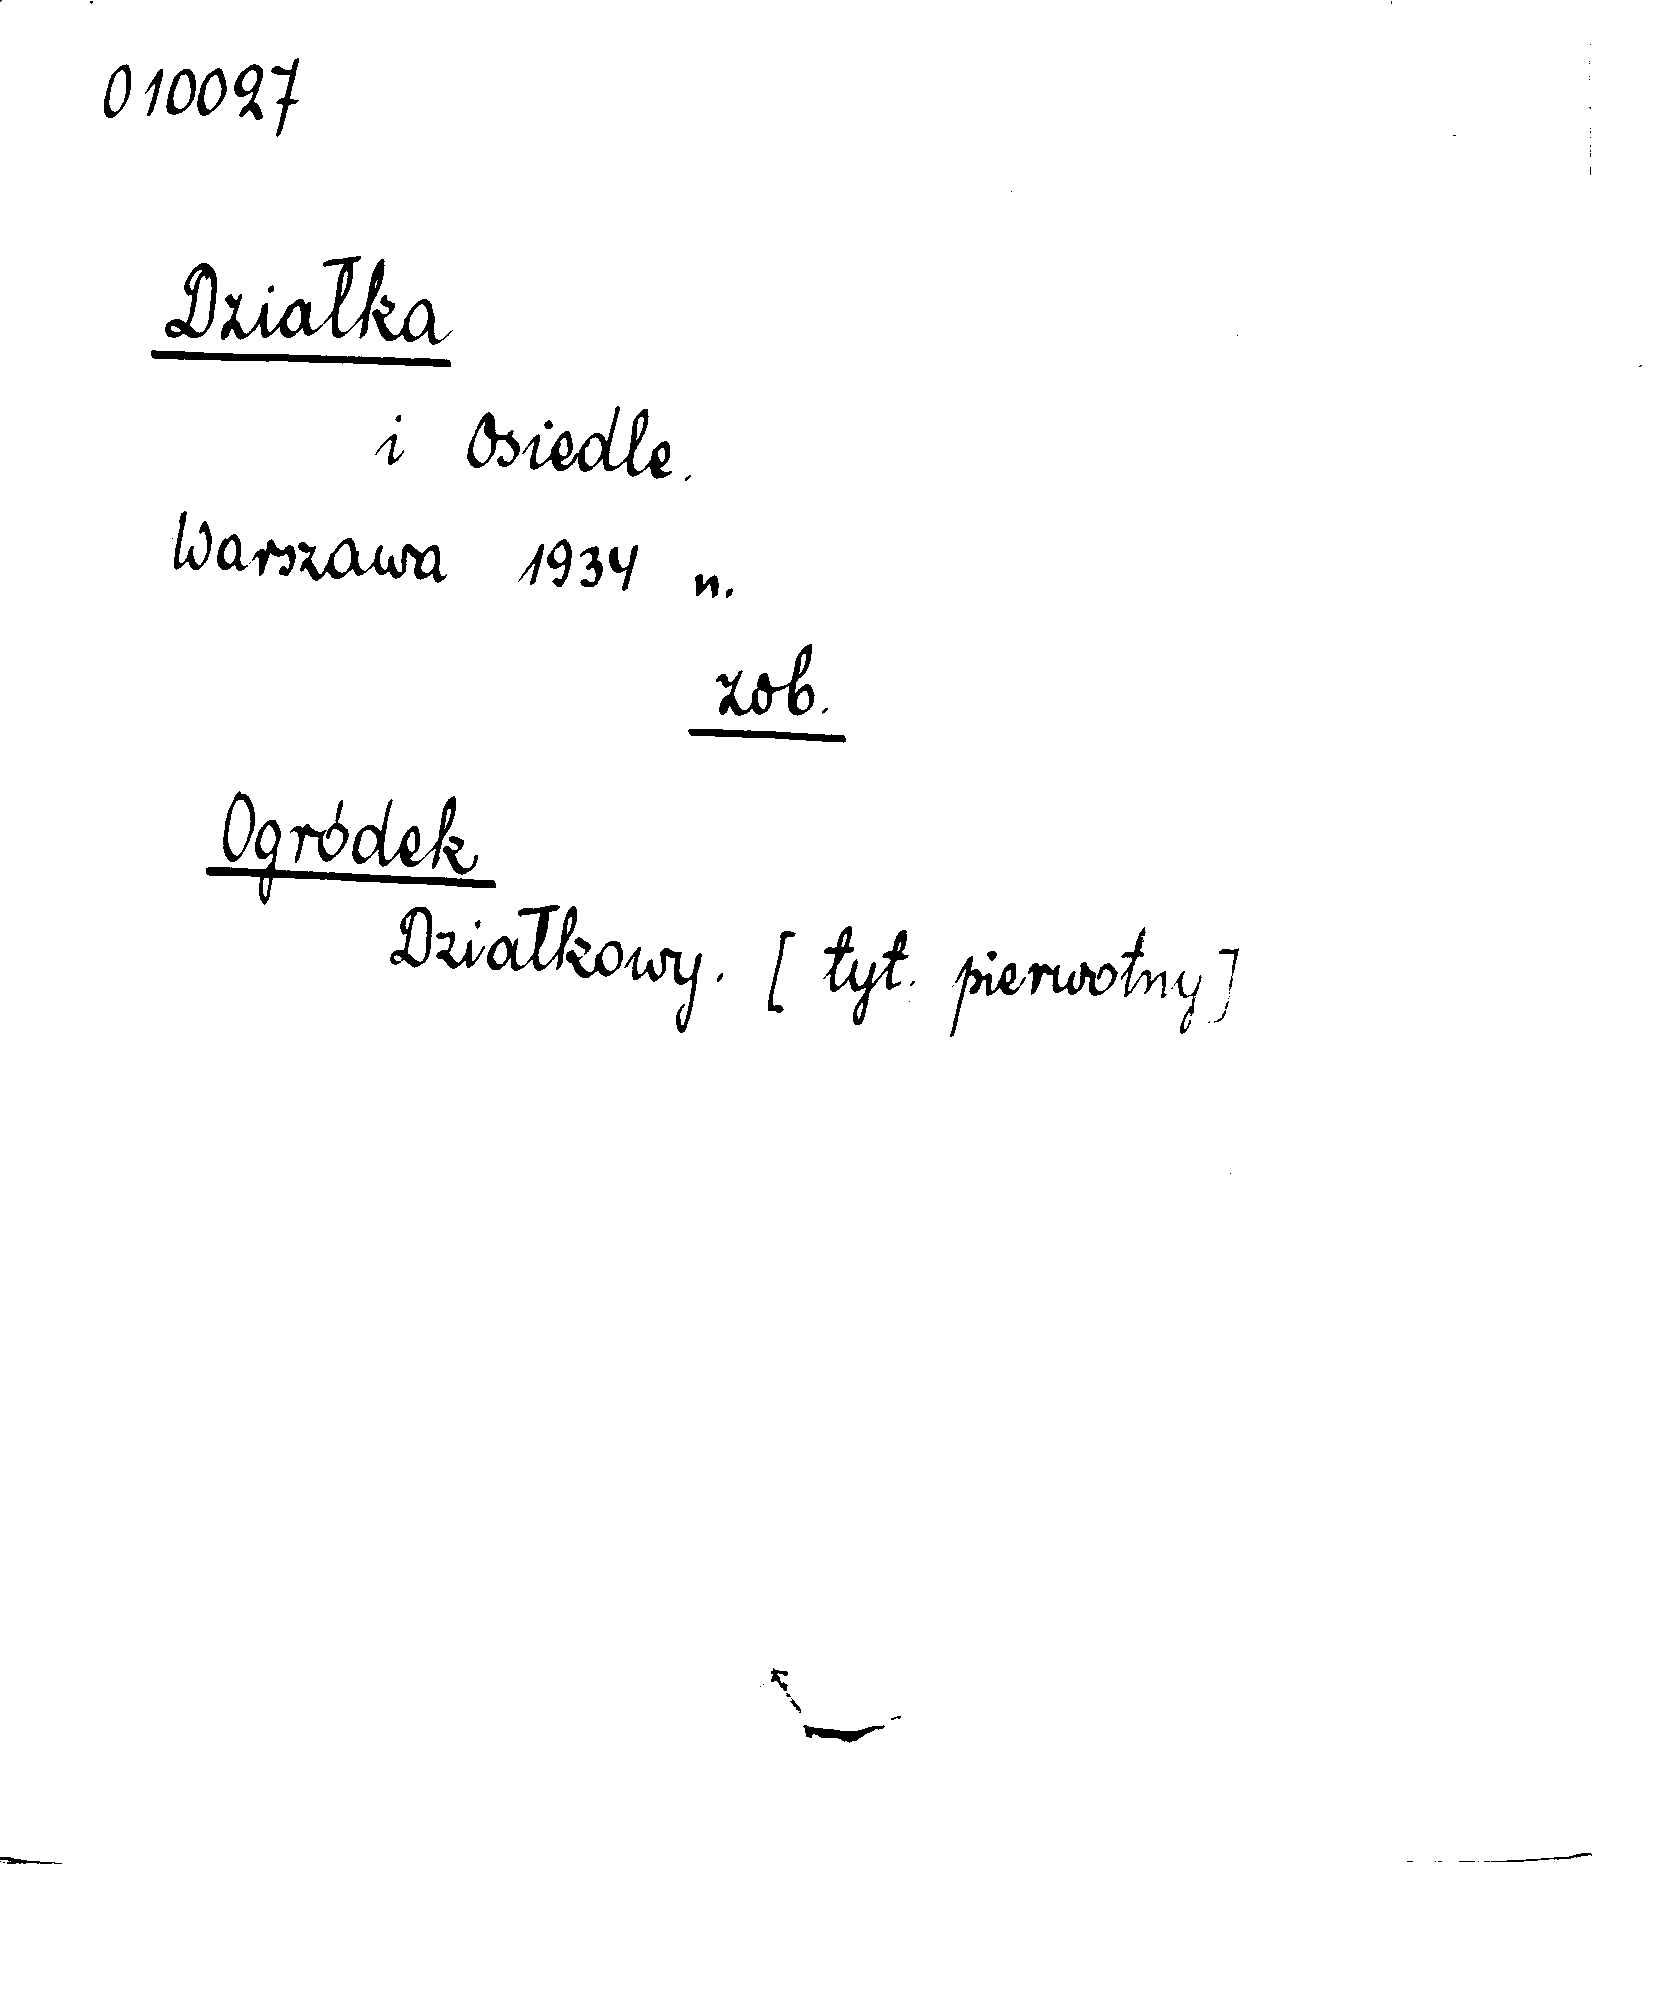 010027
Działka
i Osiedle.
Warszawa 1934 n.
zob.
Ogródek
Działkowy. [tyt. pierwotny]